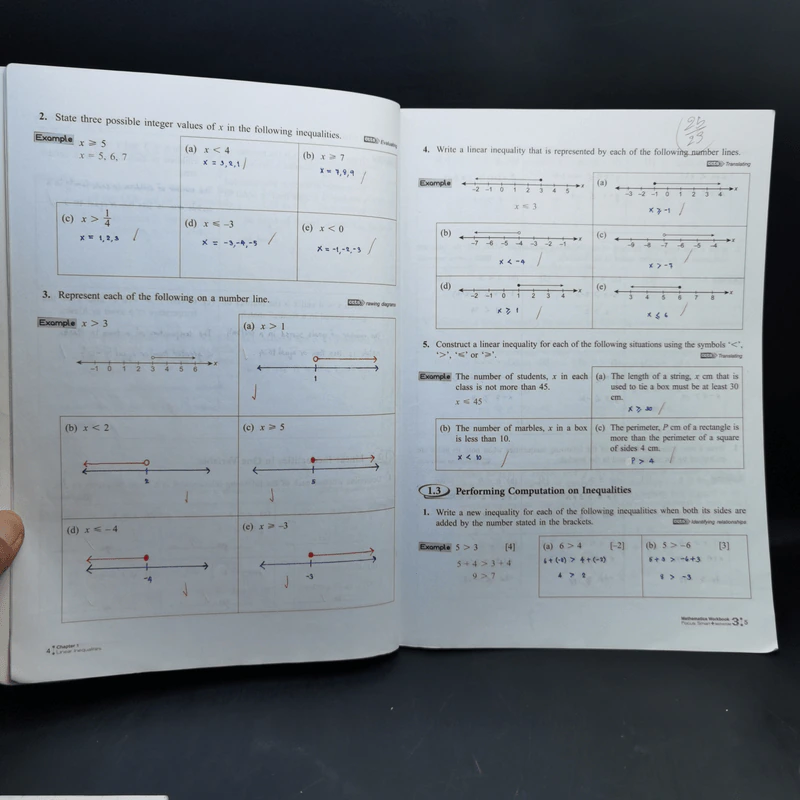 2. State three possible integer values of x in the following inequalities.
Example x ⩾ 5
x = 5, 6, 7
(a) x < 4
x = 3,2,1
(b) x ⩾ 7
x = 7,8,9
(c) x > 1/4
x = 1,2,3
(d) x ⩽ −3
x = -3,-4,-5
(e) x < 0
x = -1,-2,-3
3. Represent each of the following on a number line.
Drawing diagrams
Example x > 3
−1 0 1 2 3 4 5 6 x
(a) x > 1
1
(b) x < 2
2
(c) x ⩾ 5
5
(d) x ⩽ −4
-4
(e) x ⩾ −3
-3
4 Chapter 1
Linear Inequalities
4. Write a linear inequality that is represented by each of the following number lines.
Translating
Example
−2 −1 0 1 2 3 4 5 x
x ⩽ 3
(a)
−3 −2 −1 0 1 2 3 4 x
x ⩾ -1
(b)
−7 −6 −5 −4 −3 −2 −1 x
x < -4
(c)
−9 −8 −7 −6 −5 −4 x
x > -7
(d)
−2 −1 0 1 2 3 4 x
x ⩾ 1
(e)
3 4 5 6 7 8 x
x ⩽ 6
5. Construct a linear inequality for each of the following situations using the symbols '<',
'>', '⩽' or '⩾'.
Translating
Example The number of students, x in each
class is not more than 45.
x ⩽ 45
(a) The length of a string, x cm that is
used to tie a box must be at least 30
cm.
x ⩾ 30
(b) The number of marbles, x in a box
is less than 10.
x < 10
(c) The perimeter, P cm of a rectangle is
more than the perimeter of a square
of sides 4 cm.
P > 4
1.3 Performing Computation on Inequalities
1. Write a new inequality for each of the following inequalities when both its sides are
added by the number stated in the brackets.
Identifying relationships
Example 5 > 3 [4]
5 + 4 > 3 + 4
9 > 7
(a) 6 > 4 [−2]
6+(-2) > 4+(-2)
4 > 2
(b) 5 > −6 [3]
5+3 > -6+3
8 > -3
Mathematics Workbook
3 5